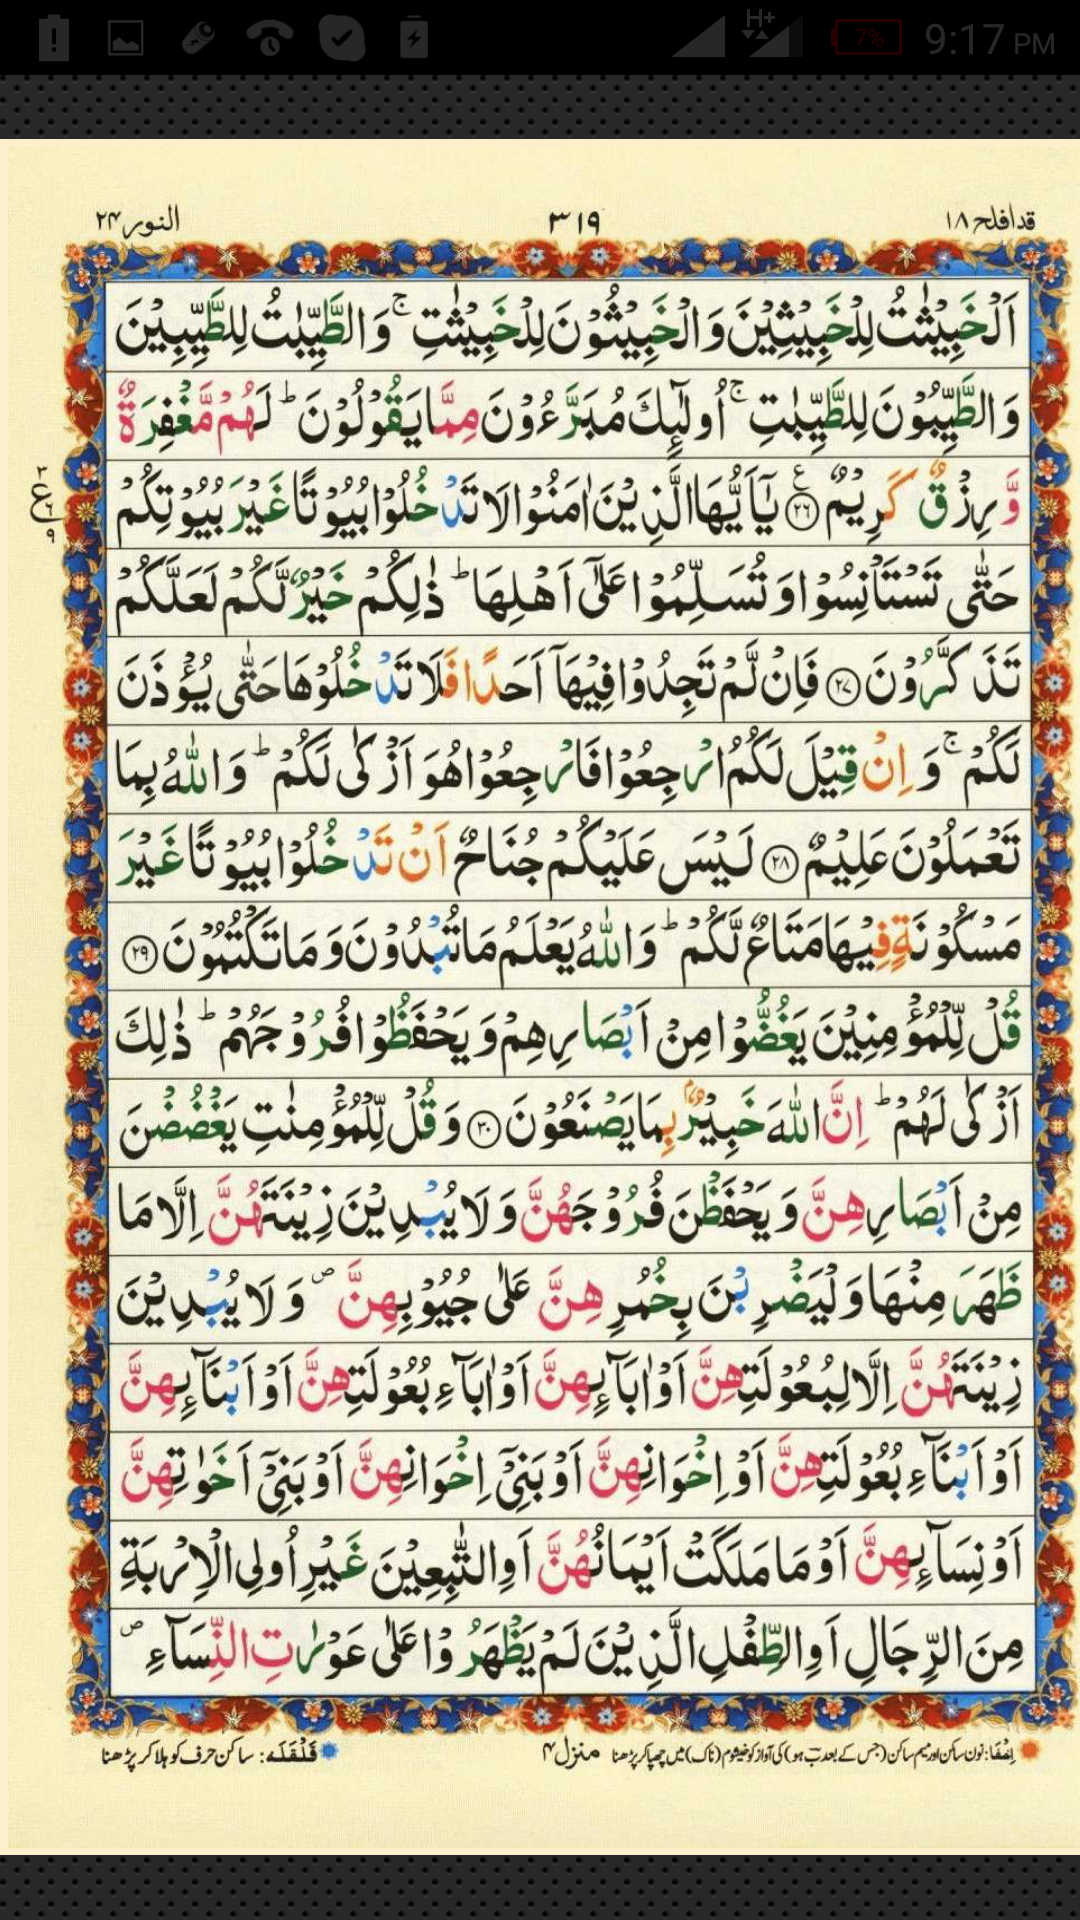 7% 9:17 PM
H+
قدافلح ۱۸ ۳۱۹ النور ۲۴
اَلْخَبِیْثٰتُ لِلْخَبِیْثِیْنَ وَالْخَبِیْثُوْنَ لِلْخَبِیْثٰتِ ۚ وَالطَّیِّبٰتُ لِلطَّیِّبِیْنَ
وَالطَّیِّبُوْنَ لِلطَّیِّبٰتِ ۚ اُولٰٓئِكَ مُبَرَّءُوْنَ مِمَّا یَقُوْلُوْنَ ؕ لَهُمْ مَّغْفِرَةٌ
وَّرِزْقٌ كَرِیْمٌ ﴿۲۶﴾ یٰۤاَیُّهَا الَّذِیْنَ اٰمَنُوْا لَا تَدْخُلُوْا بُیُوْتًا غَیْرَ بُیُوْتِكُمْ
حَتّٰى تَسْتَاْنِسُوْا وَ تُسَلِّمُوْا عَلٰۤى اَهْلِهَا ؕ ذٰلِكُمْ خَیْرٌ لَّكُمْ لَعَلَّكُمْ
تَذَكَّرُوْنَ ﴿۲۷﴾ فَاِنْ لَّمْ تَجِدُوْا فِیْهَاۤ اَحَدًا فَلَا تَدْخُلُوْهَا حَتّٰى یُؤْذَنَ
لَكُمْ ۚ وَ اِنْ قِیْلَ لَكُمُ ارْجِعُوْا فَارْجِعُوْا هُوَ اَزْكٰى لَكُمْ ؕ وَاللّٰهُ بِمَا
تَعْمَلُوْنَ عَلِیْمٌ ﴿۲۸﴾ لَیْسَ عَلَیْكُمْ جُنَاحٌ اَنْ تَدْخُلُوْا بُیُوْتًا غَیْرَ
مَسْكُوْنَةٍ فِیْهَا مَتَاعٌ لَّكُمْ ؕ وَاللّٰهُ یَعْلَمُ مَا تُبْدُوْنَ وَ مَا تَكْتُمُوْنَ ﴿۲۹﴾
قُلْ لِّلْمُؤْمِنِیْنَ یَغُضُّوْا مِنْ اَبْصَارِهِمْ وَ یَحْفَظُوْا فُرُوْجَهُمْ ؕ ذٰلِكَ
اَزْكٰى لَهُمْ ؕ اِنَّ اللّٰهَ خَبِیْرٌۢ بِمَا یَصْنَعُوْنَ ﴿۳۰﴾ وَ قُلْ لِّلْمُؤْمِنٰتِ یَغْضُضْنَ
مِنْ اَبْصَارِهِنَّ وَ یَحْفَظْنَ فُرُوْجَهُنَّ وَ لَا یُبْدِیْنَ زِیْنَتَهُنَّ اِلَّا مَا
ظَهَرَ مِنْهَا وَ لْیَضْرِبْنَ بِخُمُرِهِنَّ عَلٰى جُیُوْبِهِنَّ ۪ وَ لَا یُبْدِیْنَ
زِیْنَتَهُنَّ اِلَّا لِبُعُوْلَتِهِنَّ اَوْ اٰبَآئِهِنَّ اَوْ اٰبَآءِ بُعُوْلَتِهِنَّ اَوْ اَبْنَآئِهِنَّ
اَوْ اَبْنَآءِ بُعُوْلَتِهِنَّ اَوْ اِخْوَانِهِنَّ اَوْ بَنِیْۤ اِخْوَانِهِنَّ اَوْ بَنِیْۤ اَخَوٰتِهِنَّ
اَوْ نِسَآئِهِنَّ اَوْ مَا مَلَكَتْ اَیْمَانُهُنَّ اَوِ التّٰبِعِیْنَ غَیْرِ اُولِی الْاِرْبَةِ
مِنَ الرِّجَالِ اَوِ الطِّفْلِ الَّذِیْنَ لَمْ یَظْهَرُوْا عَلٰى عَوْرٰتِ النِّسَآءِ ۪
۳ ع ۶ ۹
اِخْفَا: نون ساکن اور میم ساکن (جس کے بعد ب ہو) کی آواز کو خیشوم (ناک) میں چھپا کر پڑھنا منزل ۴ قَلْقَلَہ: ساکن حرف کو ہلا کر پڑھنا